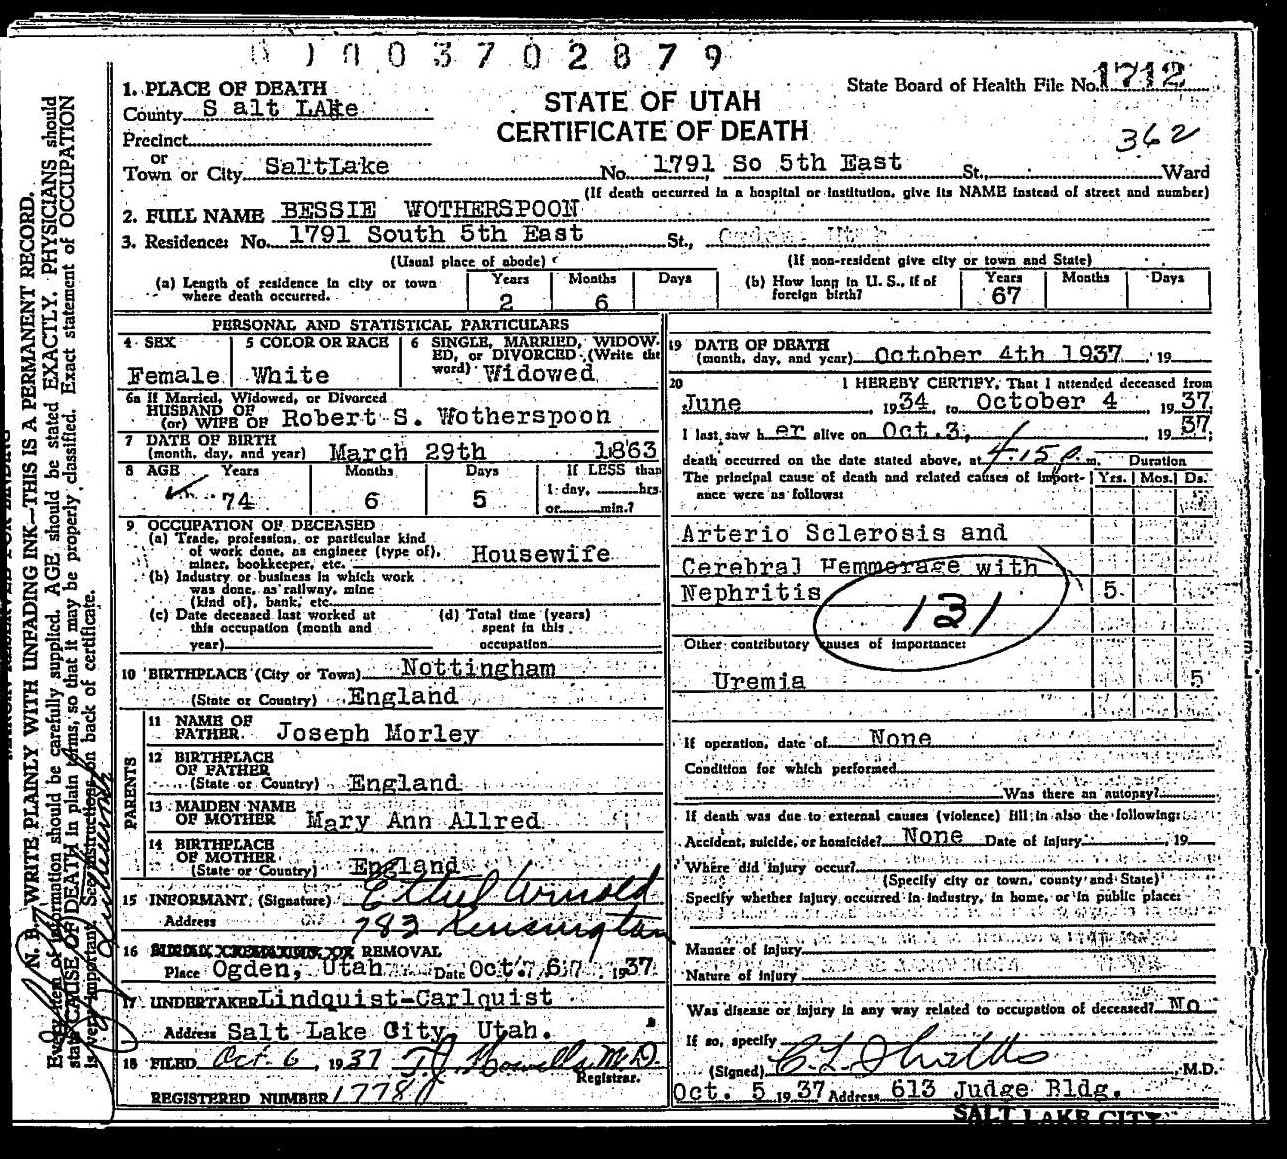 0 1 0 0 3 7 0 2 8 7 9
1. PLACE OF DEATH
County S alt LAke
Precinct
or
Town or City SaltLake
STATE OF UTAH
CERTIFICATE OF DEATH
State Board of Health File No. 1712
362
No. 1791 So 5th East St., Ward
(If death occurred in a hospital or institution, give its NAME instead of street and number)
2. FULL NAME BESSIE WOTHERSPOON
3. Residence: No. 1791 South 5th East St.,
(Usual place of abode)
(If non-resident give city or town and State)
(a) Length of residence in city or town where death occurred. Years 2 Months 6 Days
(b) How long in U. S., if of foreign birth? Years 67 Months Days
PERSONAL AND STATISTICAL PARTICULARS
4 SEX
Female
5 COLOR OR RACE
White
6 SINGLE, MARRIED, WIDOW-
ED, or DIVORCED (Write the
word) Widowed
6a If Married, Widowed, or Divorced
HUSBAND OF
(or) WIFE OF Robert S. Wotherspoon
7 DATE OF BIRTH
(month, day, and year) March 29th 1863
8 AGE Years Months Days If LESS than
74 6 5 1 day, hrs.
or min.?
9 OCCUPATION OF DECEASED
(a) Trade, profession, or particular kind
of work done, as engineer (type of),
miner, bookkeeper, etc. Housewife
(b) Industry or business in which work
was done, as railway, mine
(kind of), bank, etc.
(c) Date deceased last worked at
this occupation (month and
year)
(d) Total time (years)
spent in this
occupation
10 BIRTHPLACE (City or Town) Nottingham
(State or Country) England
PARENTS
11 NAME OF
FATHER Joseph Morley
12 BIRTHPLACE
OF FATHER
(State or Country) England
13 MAIDEN NAME
OF MOTHER Mary Ann Allred
14 BIRTHPLACE
OF MOTHER
(State or Country) England
15 INFORMANT (Signature) Ethel Arnold
Address 783 Kensington
16 BURIAL CREMATION OR REMOVAL
Place Ogden, Utah Date Oct. 6 1937
17 UNDERTAKER Lindquist-Carlquist
Address Salt Lake City, Utah.
18 FILED Oct. 6, 1937 T.J. Howells M.D.
Registrar.
REGISTERED NUMBER 17780
19 DATE OF DEATH
(month, day, and year) October 4th 1937 19
20 I HEREBY CERTIFY, That I attended deceased from
June 1934 to October 4 1937.
I last saw her alive on Oct.3, 1937;
death occurred on the date stated above, at 4.15 P m. Duration
The principal cause of death and related causes of import- Yrs. Mos. Ds.
ance were as follows:
Arterio Sclerosis and
Cerebral Hemmorage with
Nephritis 5
131
Other contributory causes of importance:
Uremia 5
If operation, date of None
Condition for which performed
Was there an autopsy?
If death was due to external causes (violence) fill in also the following:
Accident, suicide, or homicide? None Date of injury 19
Where did injury occur?
(Specify city or town, county and State)
Specify whether injury occurred in industry, in home, or in public place:
Manner of injury
Nature of injury
Was disease or injury in any way related to occupation of deceased? No
If so, specify
(Signed) C. L. , M.D.
Oct. 5 1937 Address 613 Judge Bldg.
SALT LAKE CITY
N. B.—WRITE PLAINLY WITH UNFADING INK—THIS IS A PERMANENT RECORD.
Every item of information should be carefully supplied. AGE should be stated EXACTLY. PHYSICIANS should
state CAUSE OF DEATH in plain terms, so that it may be properly classified. Exact statement of OCCUPATION
is very important. See instructions on back of certificate.